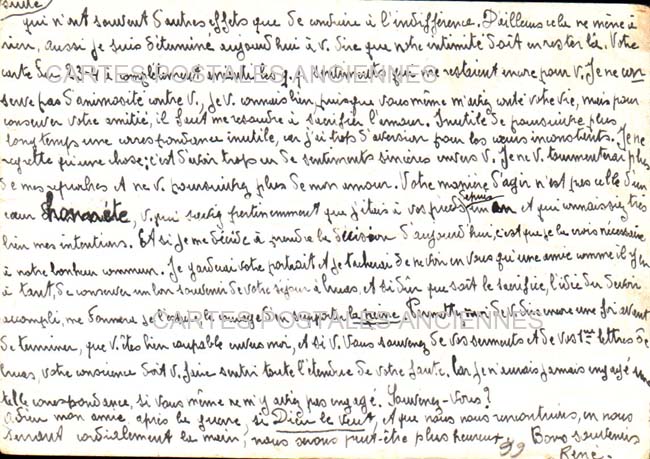 suite
qui n'ont souvent d'autres effets que de conduire à l'indifférence. D'ailleurs cela ne mène à
rien, aussi je suis déterminé aujourd'hui à v. dire que notre intimité doit en rester là. Votre
carte du 23.4 a complètement les q.q. sentiments qui me restaient encore pour v. Je ne con
CARTES POSTALES ANCIENNES
serve pas d'animosité contre V., je v. connais bien puisque vous même m'aviez conté votre vie, mais pour
conserver votre amitié, il faut me résoudre à sacrifier l'amour. Inutile de poursuivre plus
longtemps une correspondance inutile, car j'ai trop d'aversion pour les cœurs inconstants. Je ne
regrette qu'une chose; c'est d'avoir trop eu de sentiments sincères envers v. Je ne v. tourmenterai plus
de mes reproches et ne v. poursuivrai plus de mon amour. Votre manière d'agir n'est pas celle d'un
cœur honnête, v. qui saviez pertinemment que j'étais à vos pieds depuis un an et qui connaissiez très
bien mes intentions. Et si je me décide à prendre la décision d'aujourd'hui, c'est que je la crois nécessaire
à notre bonheur commun. Je garderai votre portrait et je tacherai de ne voir en vous qu'une amie comme il y en
a tant, de conserver un bon souvenir de votre séjour à, et si dur que soit le sacrifice, l'idée du devoir
accompli, me donnera je l'espère le courage d'en supporter la peine. Permettez-moi de v. dire encore une fois avant
CARTES POSTALES ANCIENNES
de terminer, que v. êtes bien coupable envers moi, et si v. vous souvenez de vos serments et de vos 1ères lettres de
votre conscience doit v. faire sentir toute l'étendue de votre faute. Car je n'aurais jamais engagé une
telle correspondance, si vous même ne m'y aviez pas engagé. Souvenez-vous?
Adieu mon amie, après la guerre, si Dieu le veut, et que nous nous rencontrions, en nous
serrant cordialement la main, nous serons peut-être plus heureux. Bons souvenirs
99
René.